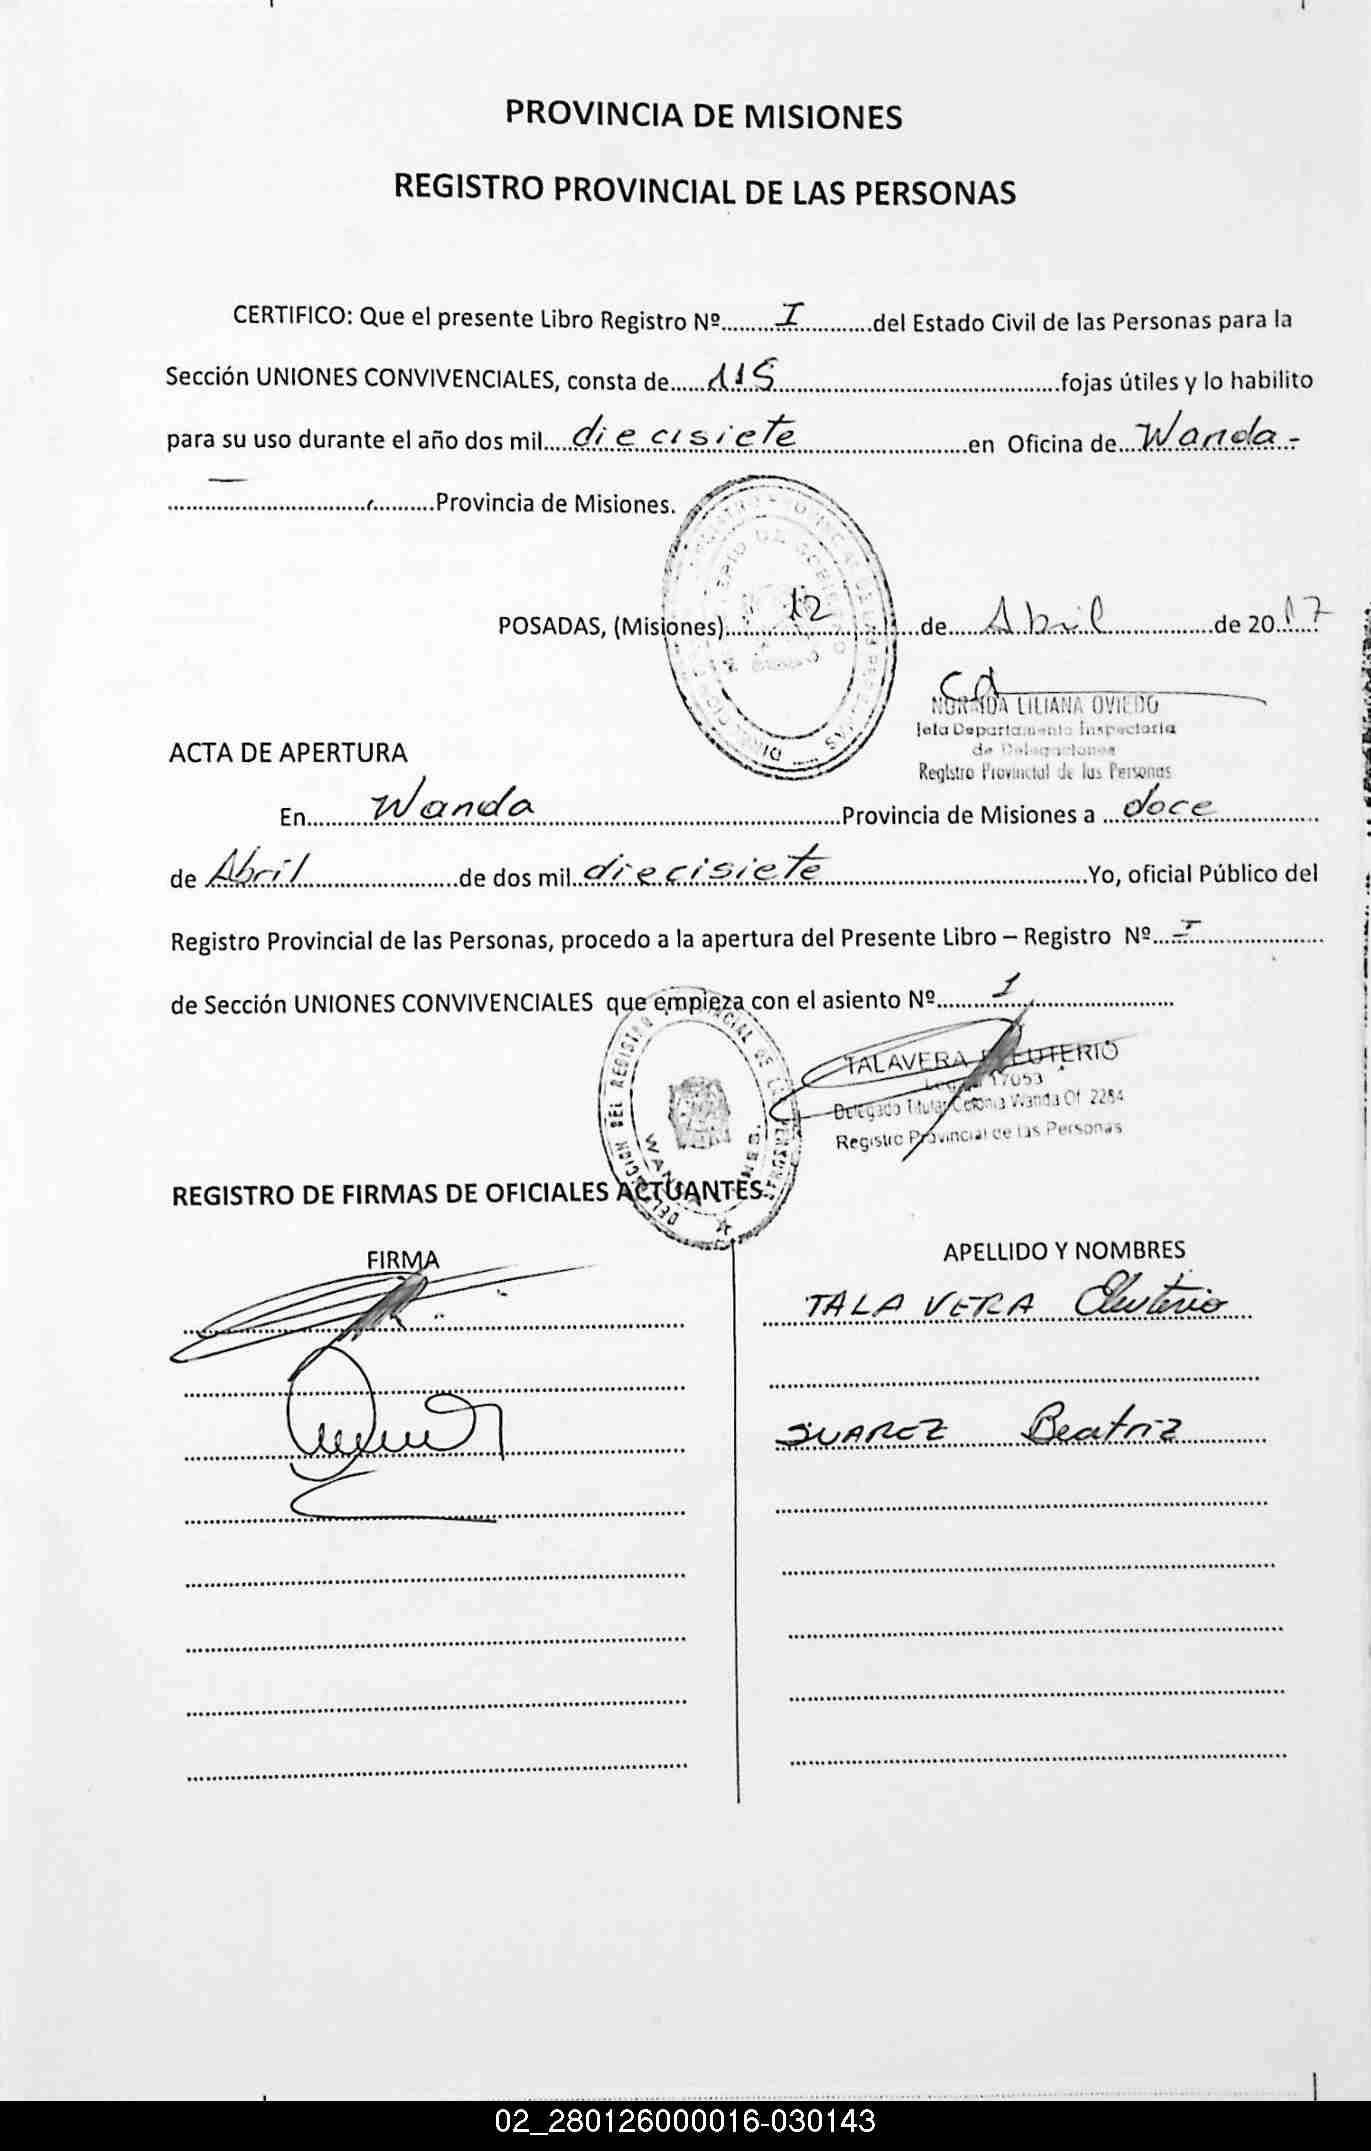 PROVINCIA DE MISIONES
REGISTRO PROVINCIAL DE LAS PERSONAS
CERTIFICO: Que el presente Libro Registro Nº.........I...........del Estado Civil de las Personas para la
Sección UNIONES CONVIVENCIALES, consta de......115..........................................fojas útiles y lo habilito
para su uso durante el año dos mil....diecisiete.........................en Oficina de....Wanda.-
...................................Provincia de Misiones.
POSADAS, (Misiones)......12..........de......Abril...............de 20.17
NORMIDA LILIANA OVIEDO
Jefa Departamento Inspectoria
de Delegaciones
Registro Provincial de las Personas
ACTA DE APERTURA
En..........Wanda........................................Provincia de Misiones a ...doce...............
de Abril.......................de dos mil..diecisiete...................................Yo, oficial Público del
Registro Provincial de las Personas, procedo a la apertura del Presente Libro – Registro Nº....I...................
de Sección UNIONES CONVIVENCIALES que empieza con el asiento Nº..........1.......................
TALAVERA ELEUTERIO
17053
Delegado Titular Colonia Wanda Of. 2284
Registro Provincial de las Personas
DELEGACION DEL REGISTRO PROVINCIAL DE LAS PERSONAS
WANDA
REGISTRO DE FIRMAS DE OFICIALES ACTUANTES
FIRMA APELLIDO Y NOMBRES
TALAVERA Eleuterio
SUAREZ Beatriz
02_280126000016-030143